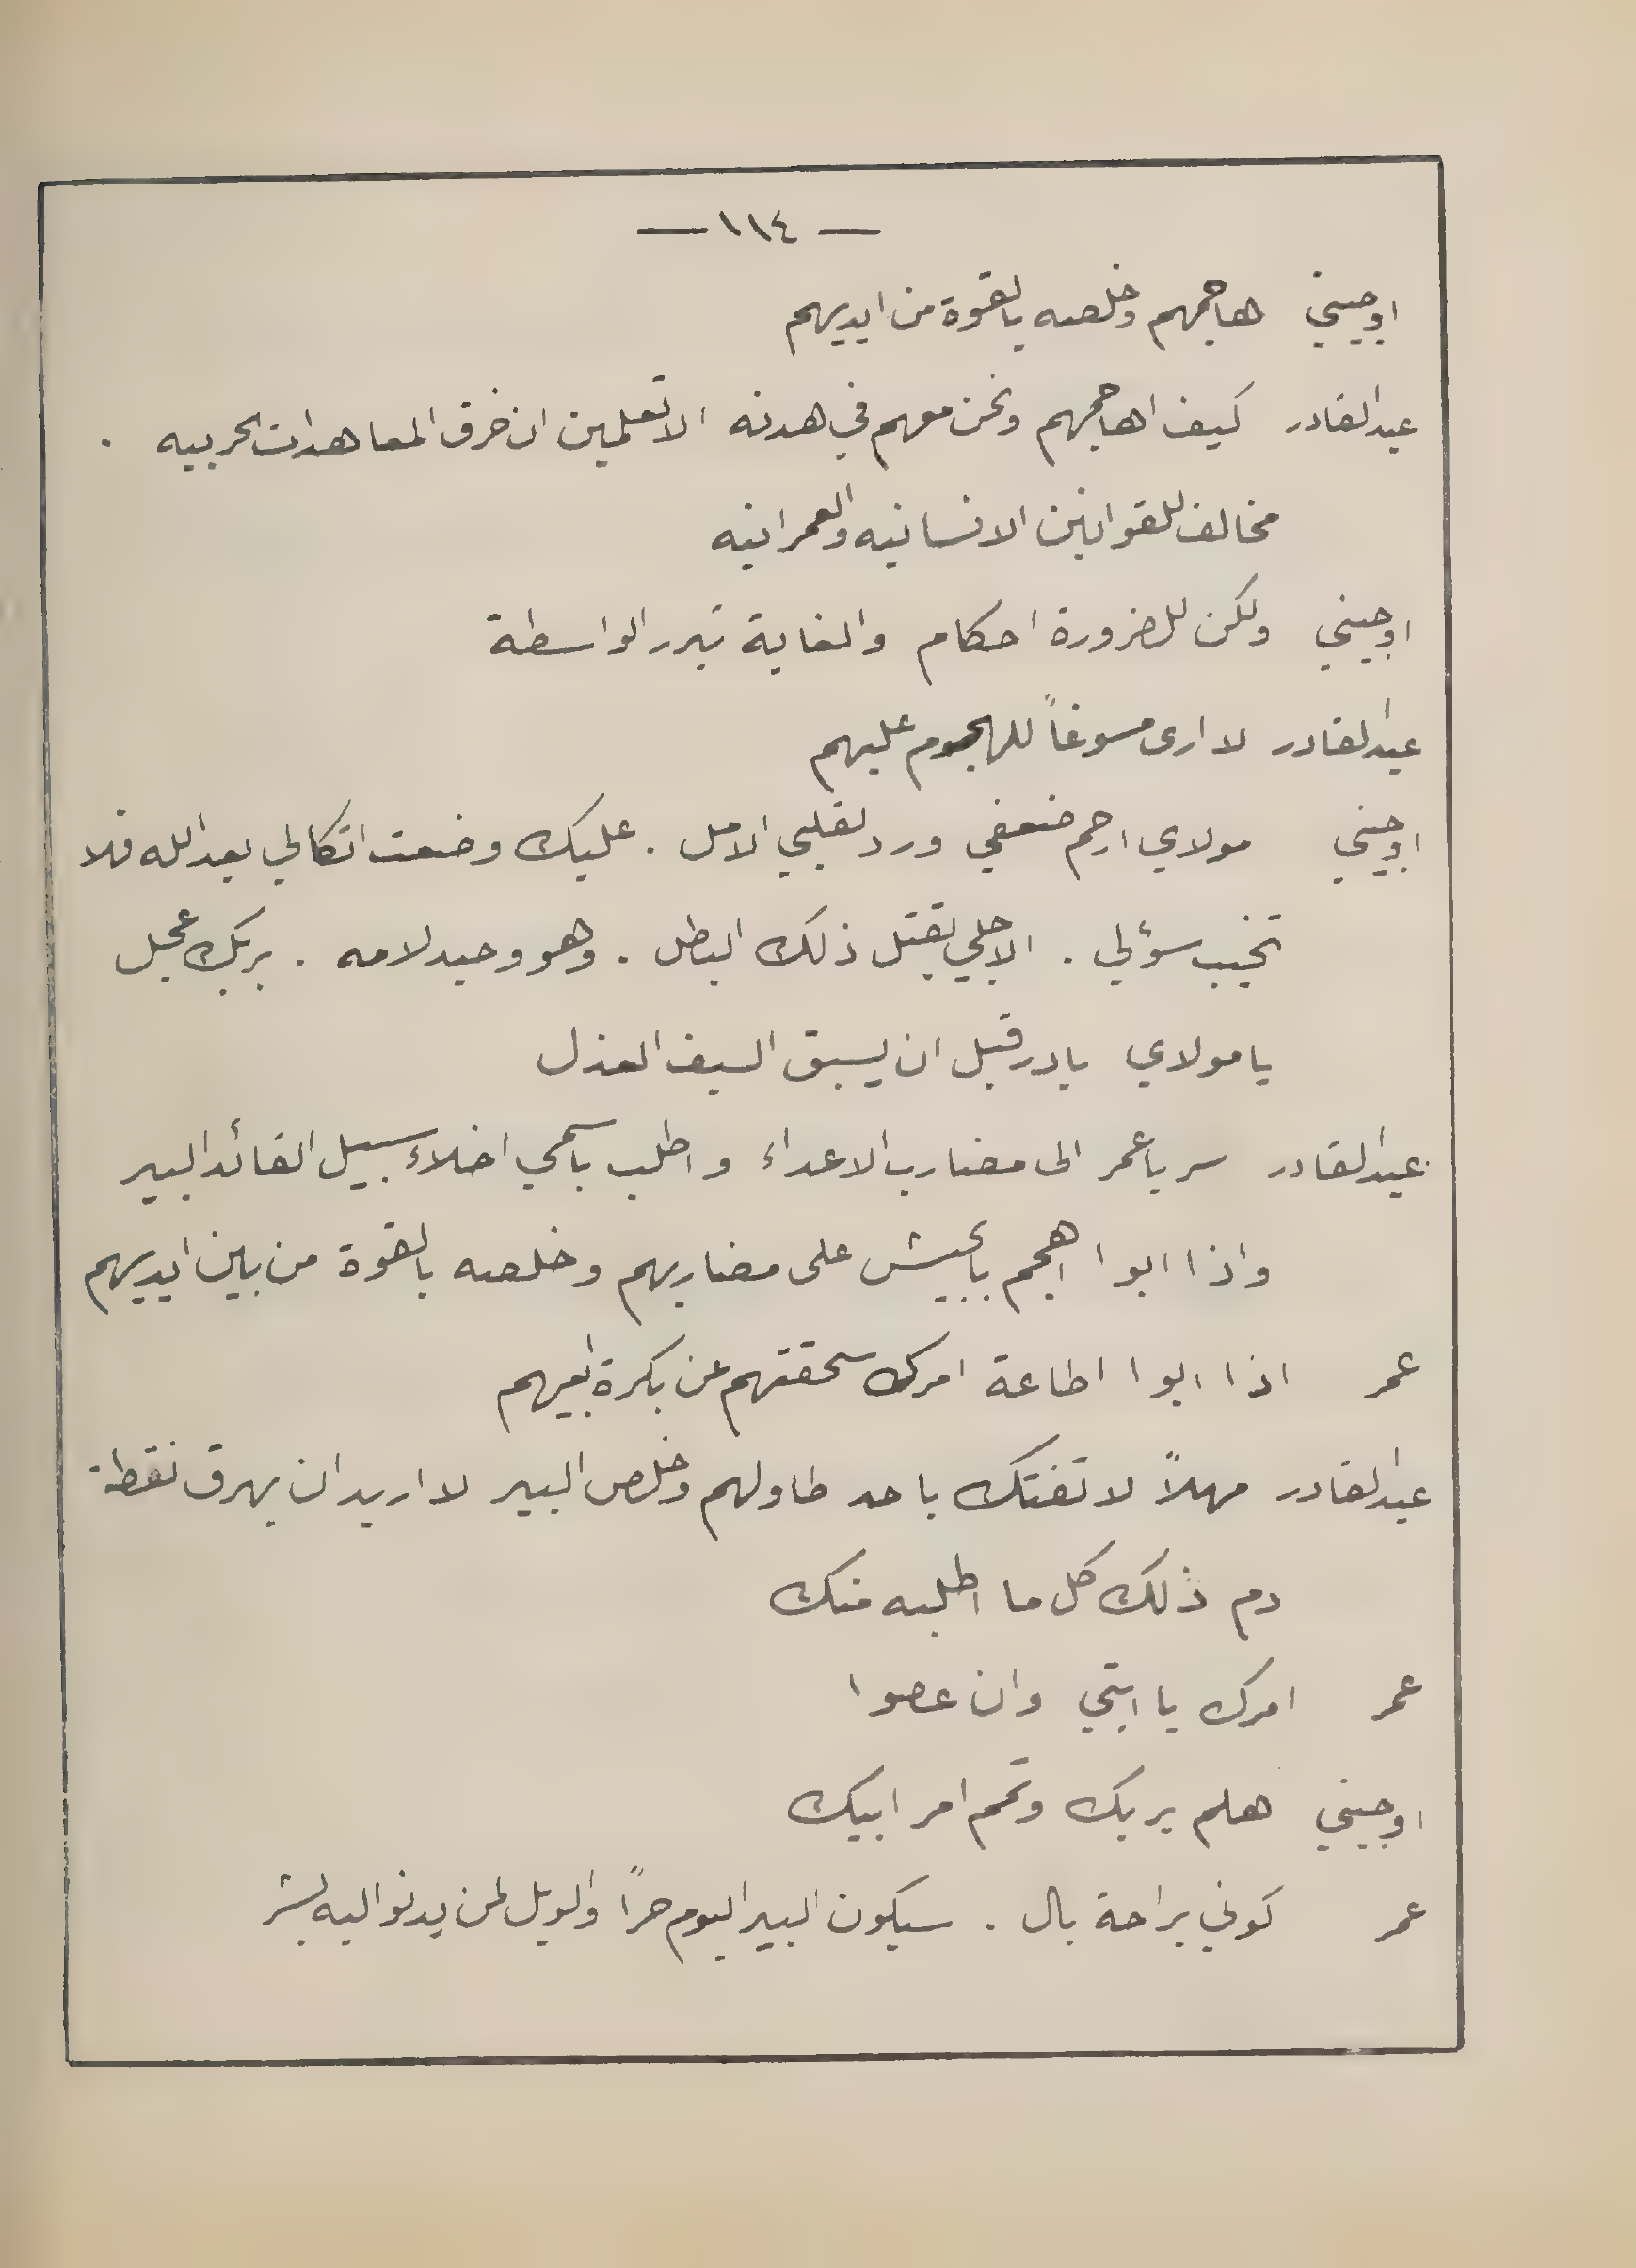 — ١١٤ —
اوجيني هاجمهم وخلصه بالقوة من ايديهم
عبدالقادر كيف اهاجمهم ونحن معهم في هدنه الا تعلمين ان خرق المعاهدات الحربيه .
مخالف للقوانين الانسانيه والعمرانيه
اوجيني ولكن للضرورة احكام والغاية تبرر الواسطة
عبدالقادر لا ارى مسوغاً للهجوم عليهم
اوجيني مولاي ارحم ضعفي ورد لقلبي الامل . عليك وضعت اتكالي بعد الله فلا
تخيب سؤلي . الاجلي يقتل ذلك البطل . وهو وحيد لامه . بربك عجل
يا مولاي بادر قبل ان يسبق السيف العذل
عبدالقادر سر يا عمر الى مضارب الاعداء واطلب باسمي اخلاء سبيل القائد البير
واذا ابوا اهجم بالجيش على مضاربهم وخلصه بالقوة من بين ايديهم
عمر اذا ابوا اطاعة امرك سحقتهم عن بكرة ابيهم
عبدالقادر مهلاً لا تفتك باحد طاولهم وخلص البير لا اريد ان يهرق نقطة
دم ذلك كل ما اطلبه منك
عمر امرك يا ابتي وان عصوا
اوجيني هلم بربك وتمم امر ابيك
عمر كوني براحة بال . سيكون البير اليوم حراً والويل لمن يدنو اليه بشر